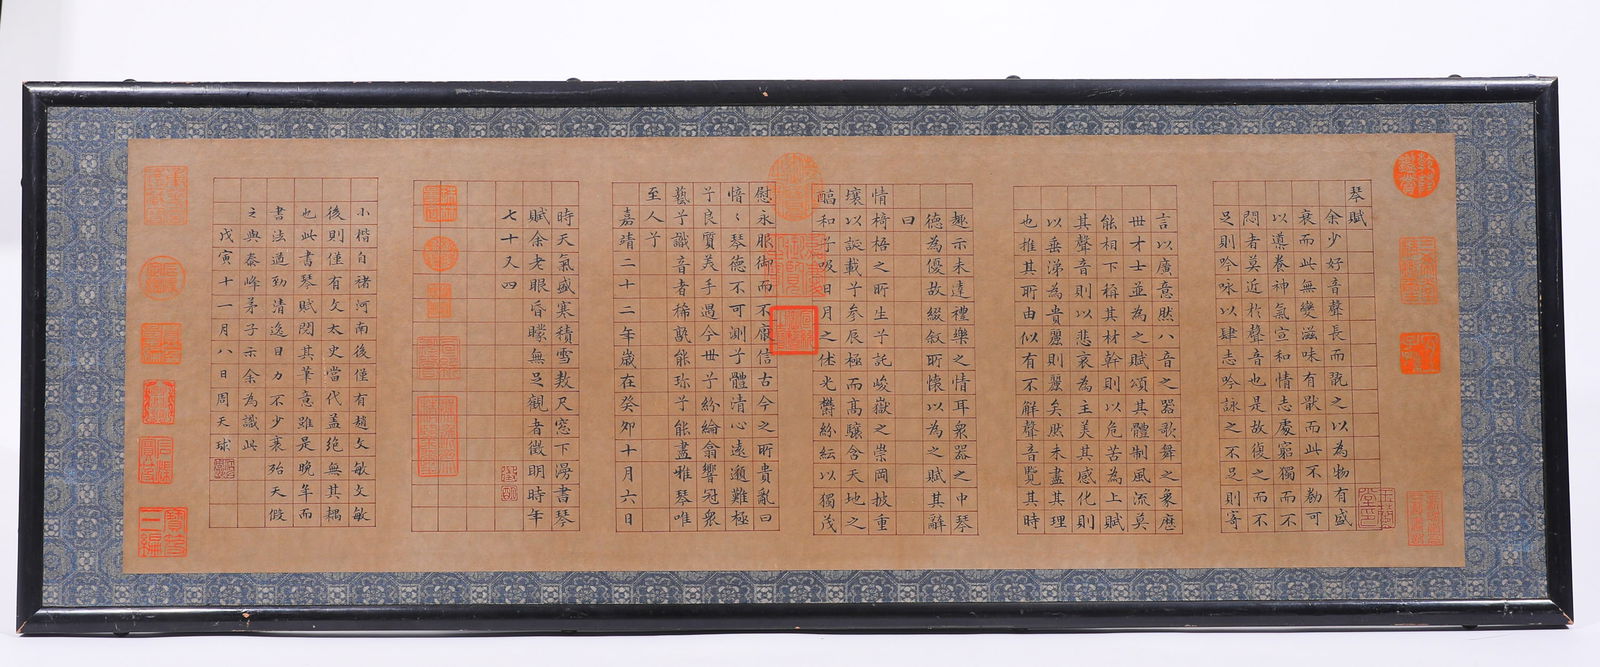 琴賦
余少好音聲長而翫之以為物有盛
衰而此無變滋味有猒而此不勌可
以導養神氣宣和情志處窮獨而不
悶者莫近於聲音也是故復之而不
足則吟咏以肆志吟詠之不足則寄
言以廣意然八音之器歌舞之象歷
世才士並為之賦頌其體制風流莫
能相下稱其材幹則以危苦為上賦
其聲音則以悲哀為主美其感化則
以垂涕為貴麗則麗矣然未盡其理
也推其所由似有不解聲音覽其時
趣示未達禮樂之情耳衆器之中琴
德為優故綴敘所懷以為之賦其辭
曰
情椅梧之所生子託峻嶽之崇岡披重
壤以誕載子參辰極而高驤含天地之
醞和子吸日月之休光鬱紛紜以獨茂
慰永服御而不厭信古今之所貴亂曰
愔〻琴德不可測子體清心遠邈難極
子良質美手遇今世子紛綸翕響冠衆
藝子識音者稀孰能珍子能盡雅琴唯
至人子
嘉靖二十二年歲在癸卯十月六日
時天氣盛寒積雪數尺窓下漫書琴
賦余老眼昏矇無足觀者徵明時年
七十又四
小楷自褚河南後僅有趙文敏文敏
後則僅有文太史當代盖絕無其耦
也此書琴賦閱其筆意雖是晚年而
書法遒勁清逸目力不少衰殆天假
之與泰峰茅子示余為識此
戊寅十一月八日周天球